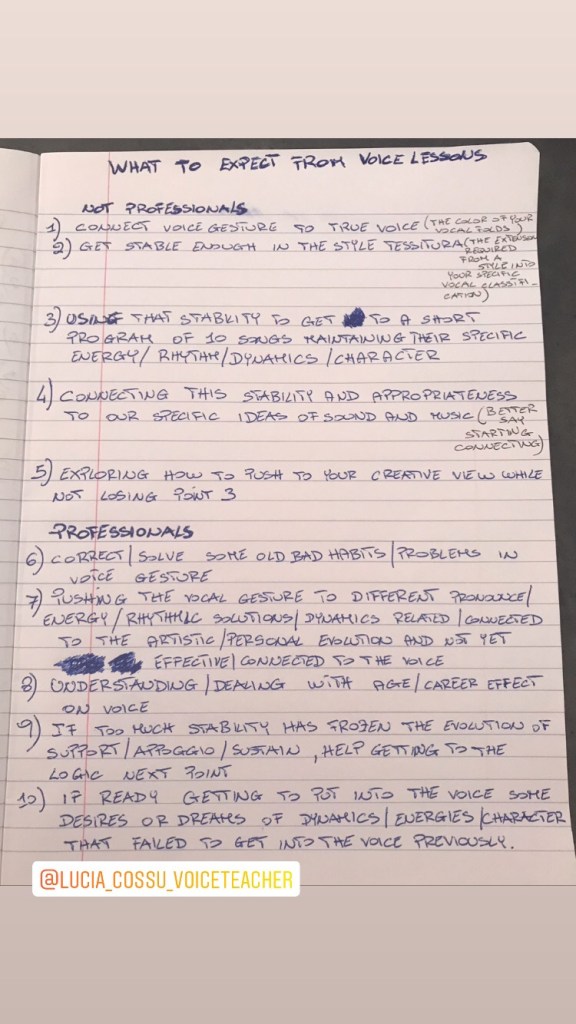 WHAT TO EXPECT FROM VOICE LESSONS
NOT PROFESSIONALS
1) CONNECT VOICE GESTURE TO TRUE VOICE (THE COLOR OF YOUR
VOCAL FOLDS)
2) GET STABLE ENOUGH IN THE STYLE TESSITURA (THE EXTENSION
REQUIRED
FROM A
STYLE INTO
YOUR SPECIFIC
VOCAL CLASSIFI-
CATION)
3) USING THAT STABILITY TO GET TO A SHORT
PROGRAM OF 10 SONGS MAINTAINING THEIR SPECIFIC
ENERGY/ RHYTHM/DYNAMICS/CHARACTER
4) CONNECTING THIS STABILITY AND APPROPRIATENESS
TO OUR SPECIFIC IDEAS OF SOUND AND MUSIC (BETTER
SAY
STARTING
CONNECTING)
5) EXPLORING HOW TO PUSH TO YOUR CREATIVE VIEW WHILE
NOT LOSING POINT 3
PROFESSIONALS
6) CORRECT/SOLVE SOME OLD BAD HABITS/PROBLEMS IN
VOICE GESTURE
7) PUSHING THE VOCAL GESTURE TO DIFFERENT PRONOUNCE/
ENERGY/RHYTHMIC SOLUTIONS/DYNAMICS RELATED/CONNECTED
TO THE ARTISTIC/PERSONAL EVOLUTION AND NOT YET
EFFECTIVE/CONNECTED TO THE VOICE
8) UNDERSTANDING/DEALING WITH AGE/CAREER EFFECT
ON VOICE
9) IF TOO MUCH STABILITY HAS FROZEN THE EVOLUTION OF
SUPPORT/APPOGGIO/SUSTAIN, HELP GETTING TO THE
LOGIC NEXT POINT
10) IF READY GETTING TO PUT INTO THE VOICE SOME
DESIRES OR DREAMS OF DYNAMICS/ENERGIES/CHARACTER
THAT FAILED TO GET INTO THE VOICE PREVIOUSLY.
@LUCIA_COSSU_VOICETEACHER